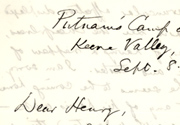 Putnam's Camp
Keene Valley,
Sept. 8
Dear Henry,